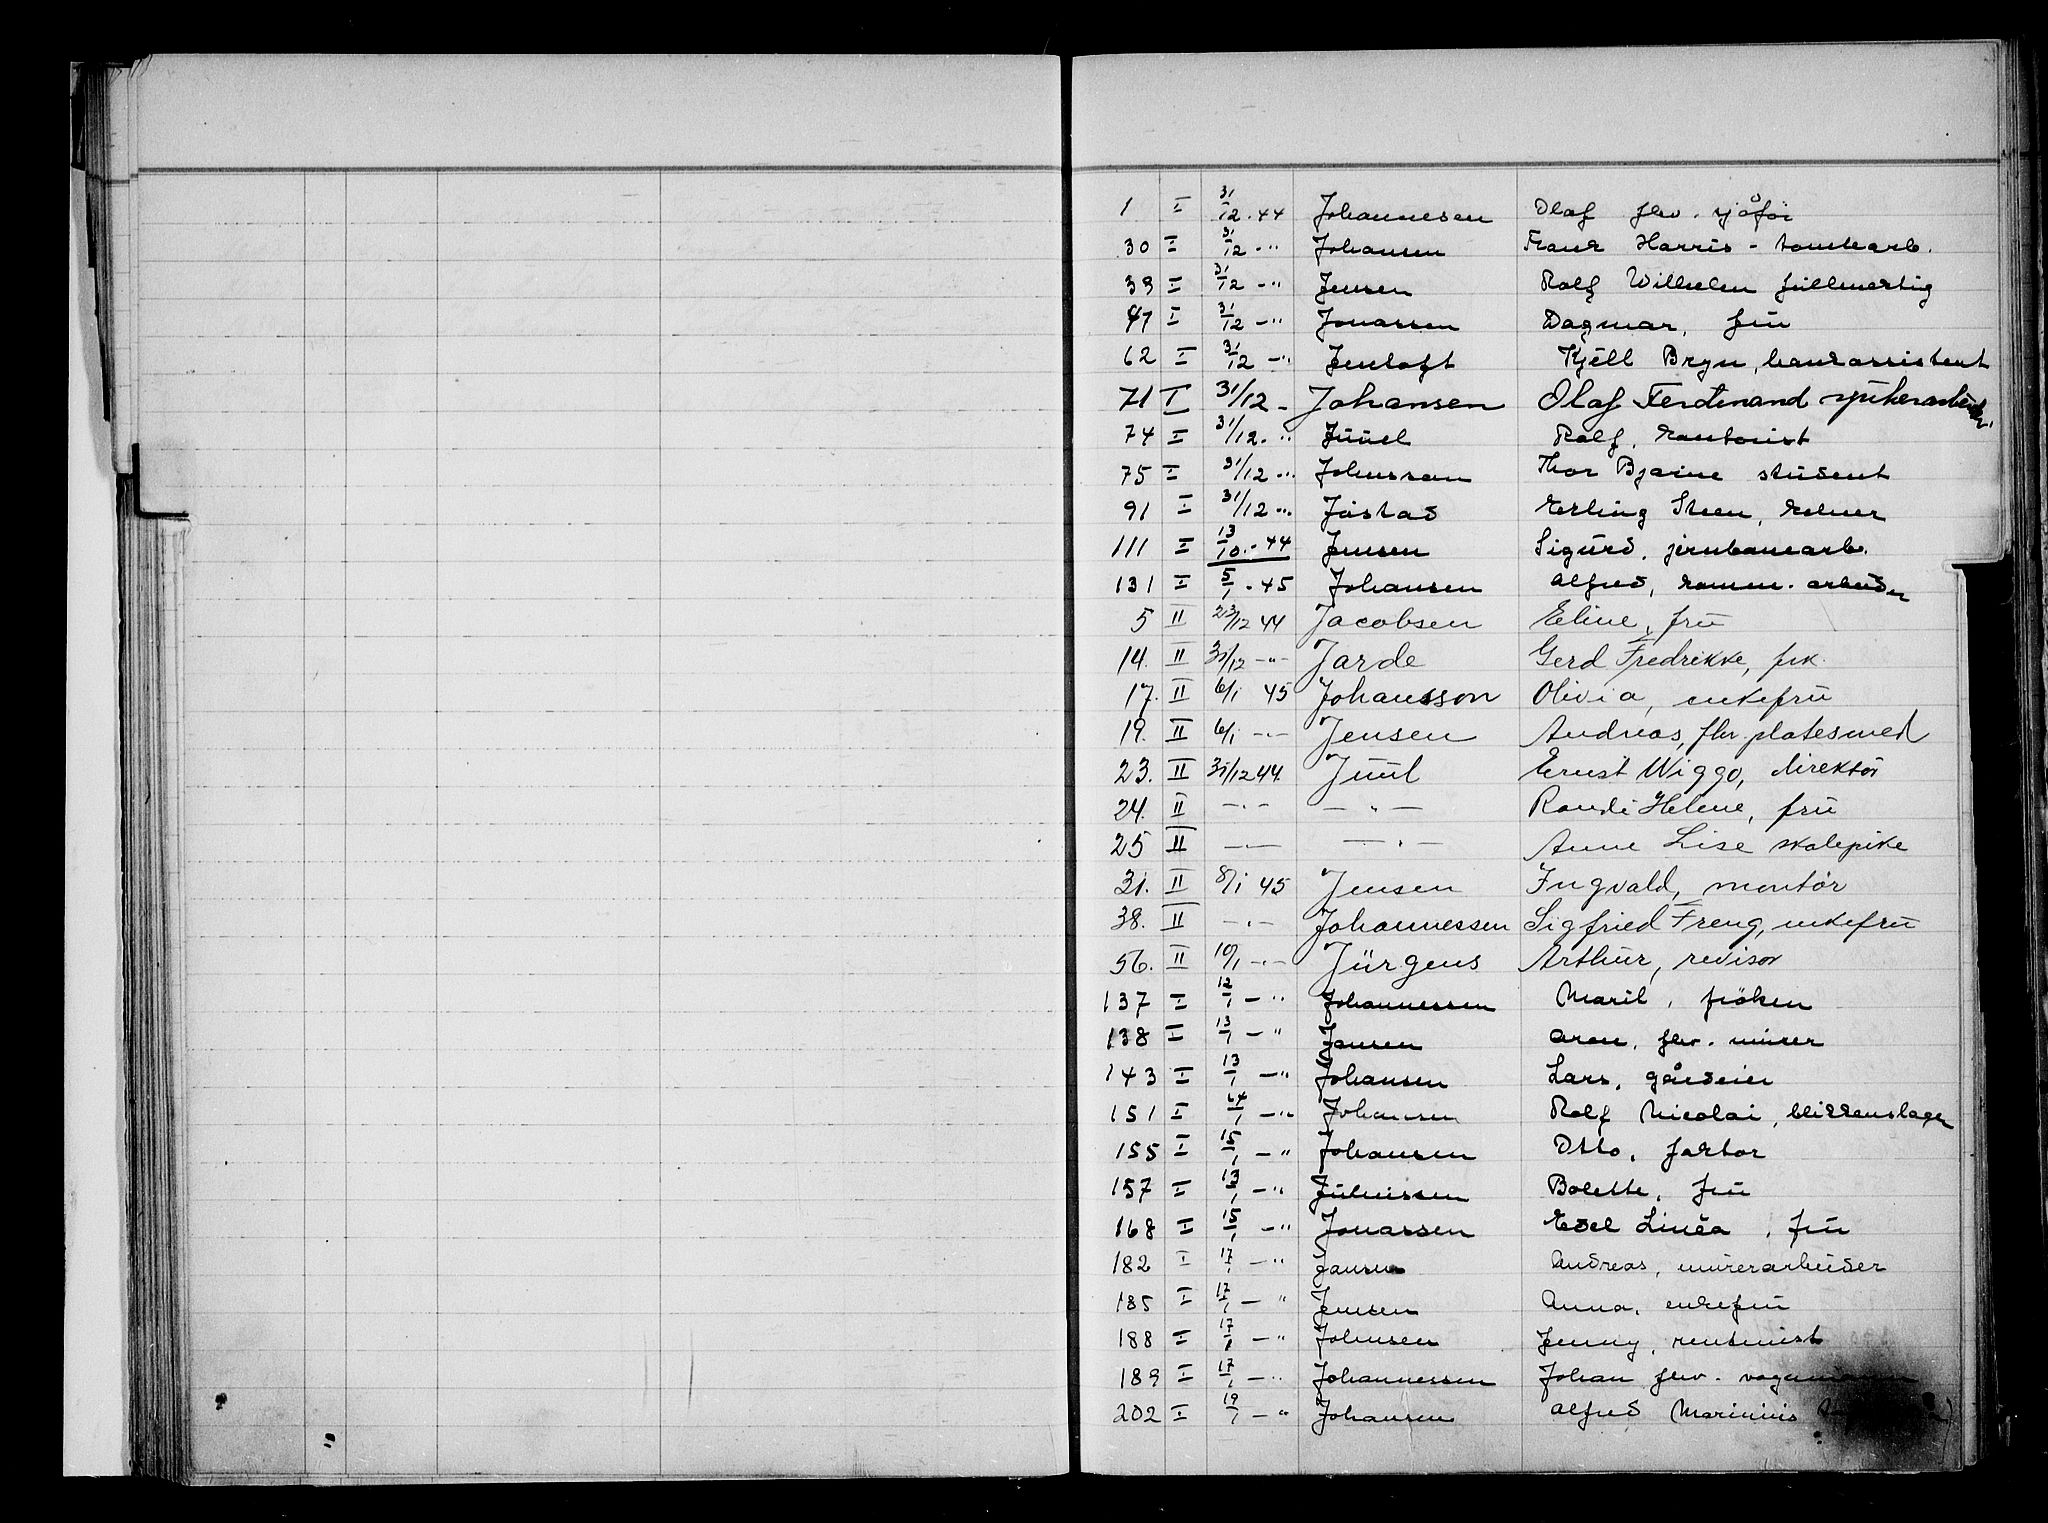 1 I 31/12-44 Johannesen Olaf fhv. sjåfør
30 I 31/12 -" Johansen Frank Harris - tomtearb.
39 I 31/12 -" Jensen Rolf Wilhelm fullmektig
47 I 31/12 -" Jonassen Dagmar, fru
62 I 31/12 -" Jentoft Kjell Bryn, bankassistent
71 I 31/12 - Johansen Olaf Ferdinand spikerarbeider
74 I 31/12 -" Juuel Rolf, kontorist
75 I 31/12 -" Johnsson Thor Bjarne student
91 I 31/12 -" Jøstad Erling Steen, kelner
111 I 13/10.-44 Jensen Sigurd, jernbanearb.
131 I 5/1-45 Johansen Alfred, komm. arbeider
5 II 23/12 44 Jacobsen Eline, fru
14. II 31/12 -"- Jarde Gerd Fredrikke, frk.
17. II 6/1 45 Johansson Olivia, enkefru
19. II 6/1 -"- Jensen Andreas, fhv. platesmed
23. II 31/12 44 Juul Ernst Wiggo, direktør
24. II -"- -"- Randi Helene, fru
25 II -"- -"- Anne Lise skolepike
31. II 8/1 45 Jensen Ingvald, montør
38. II -"- Johannessen Sigfried Freng, enkefru
56. II 10/1 -"- Jürgens Arthur, revisor
137 I 12/1 -" Johannessen Maril, frøken
138 I 13/1 -" Jansen Aron, fhv. murer
143 I 13/1 -" Johansen Lars, gårdeier
151 I 14/1 -" Johansen Rolf Nicolai, blikkenslager
155 I 15/1 -" Johansen Otto, faktor
157 I 13/1 -" Julnissen Bolette, fru
168 I 15/1 -" Jonassen Edel Linéa, fru
182 I 17/1 -" Jansen Andreas, murerarbeider
185 I 17/1 -" Jensen Anna, enkefru
188 I 17/1 -" Johnsen Jenny, rentenist
189 I 17/1 -" Johannessen Johan fhv. vognmann
202 I 19/1 -" Johansen Alfred Marinius